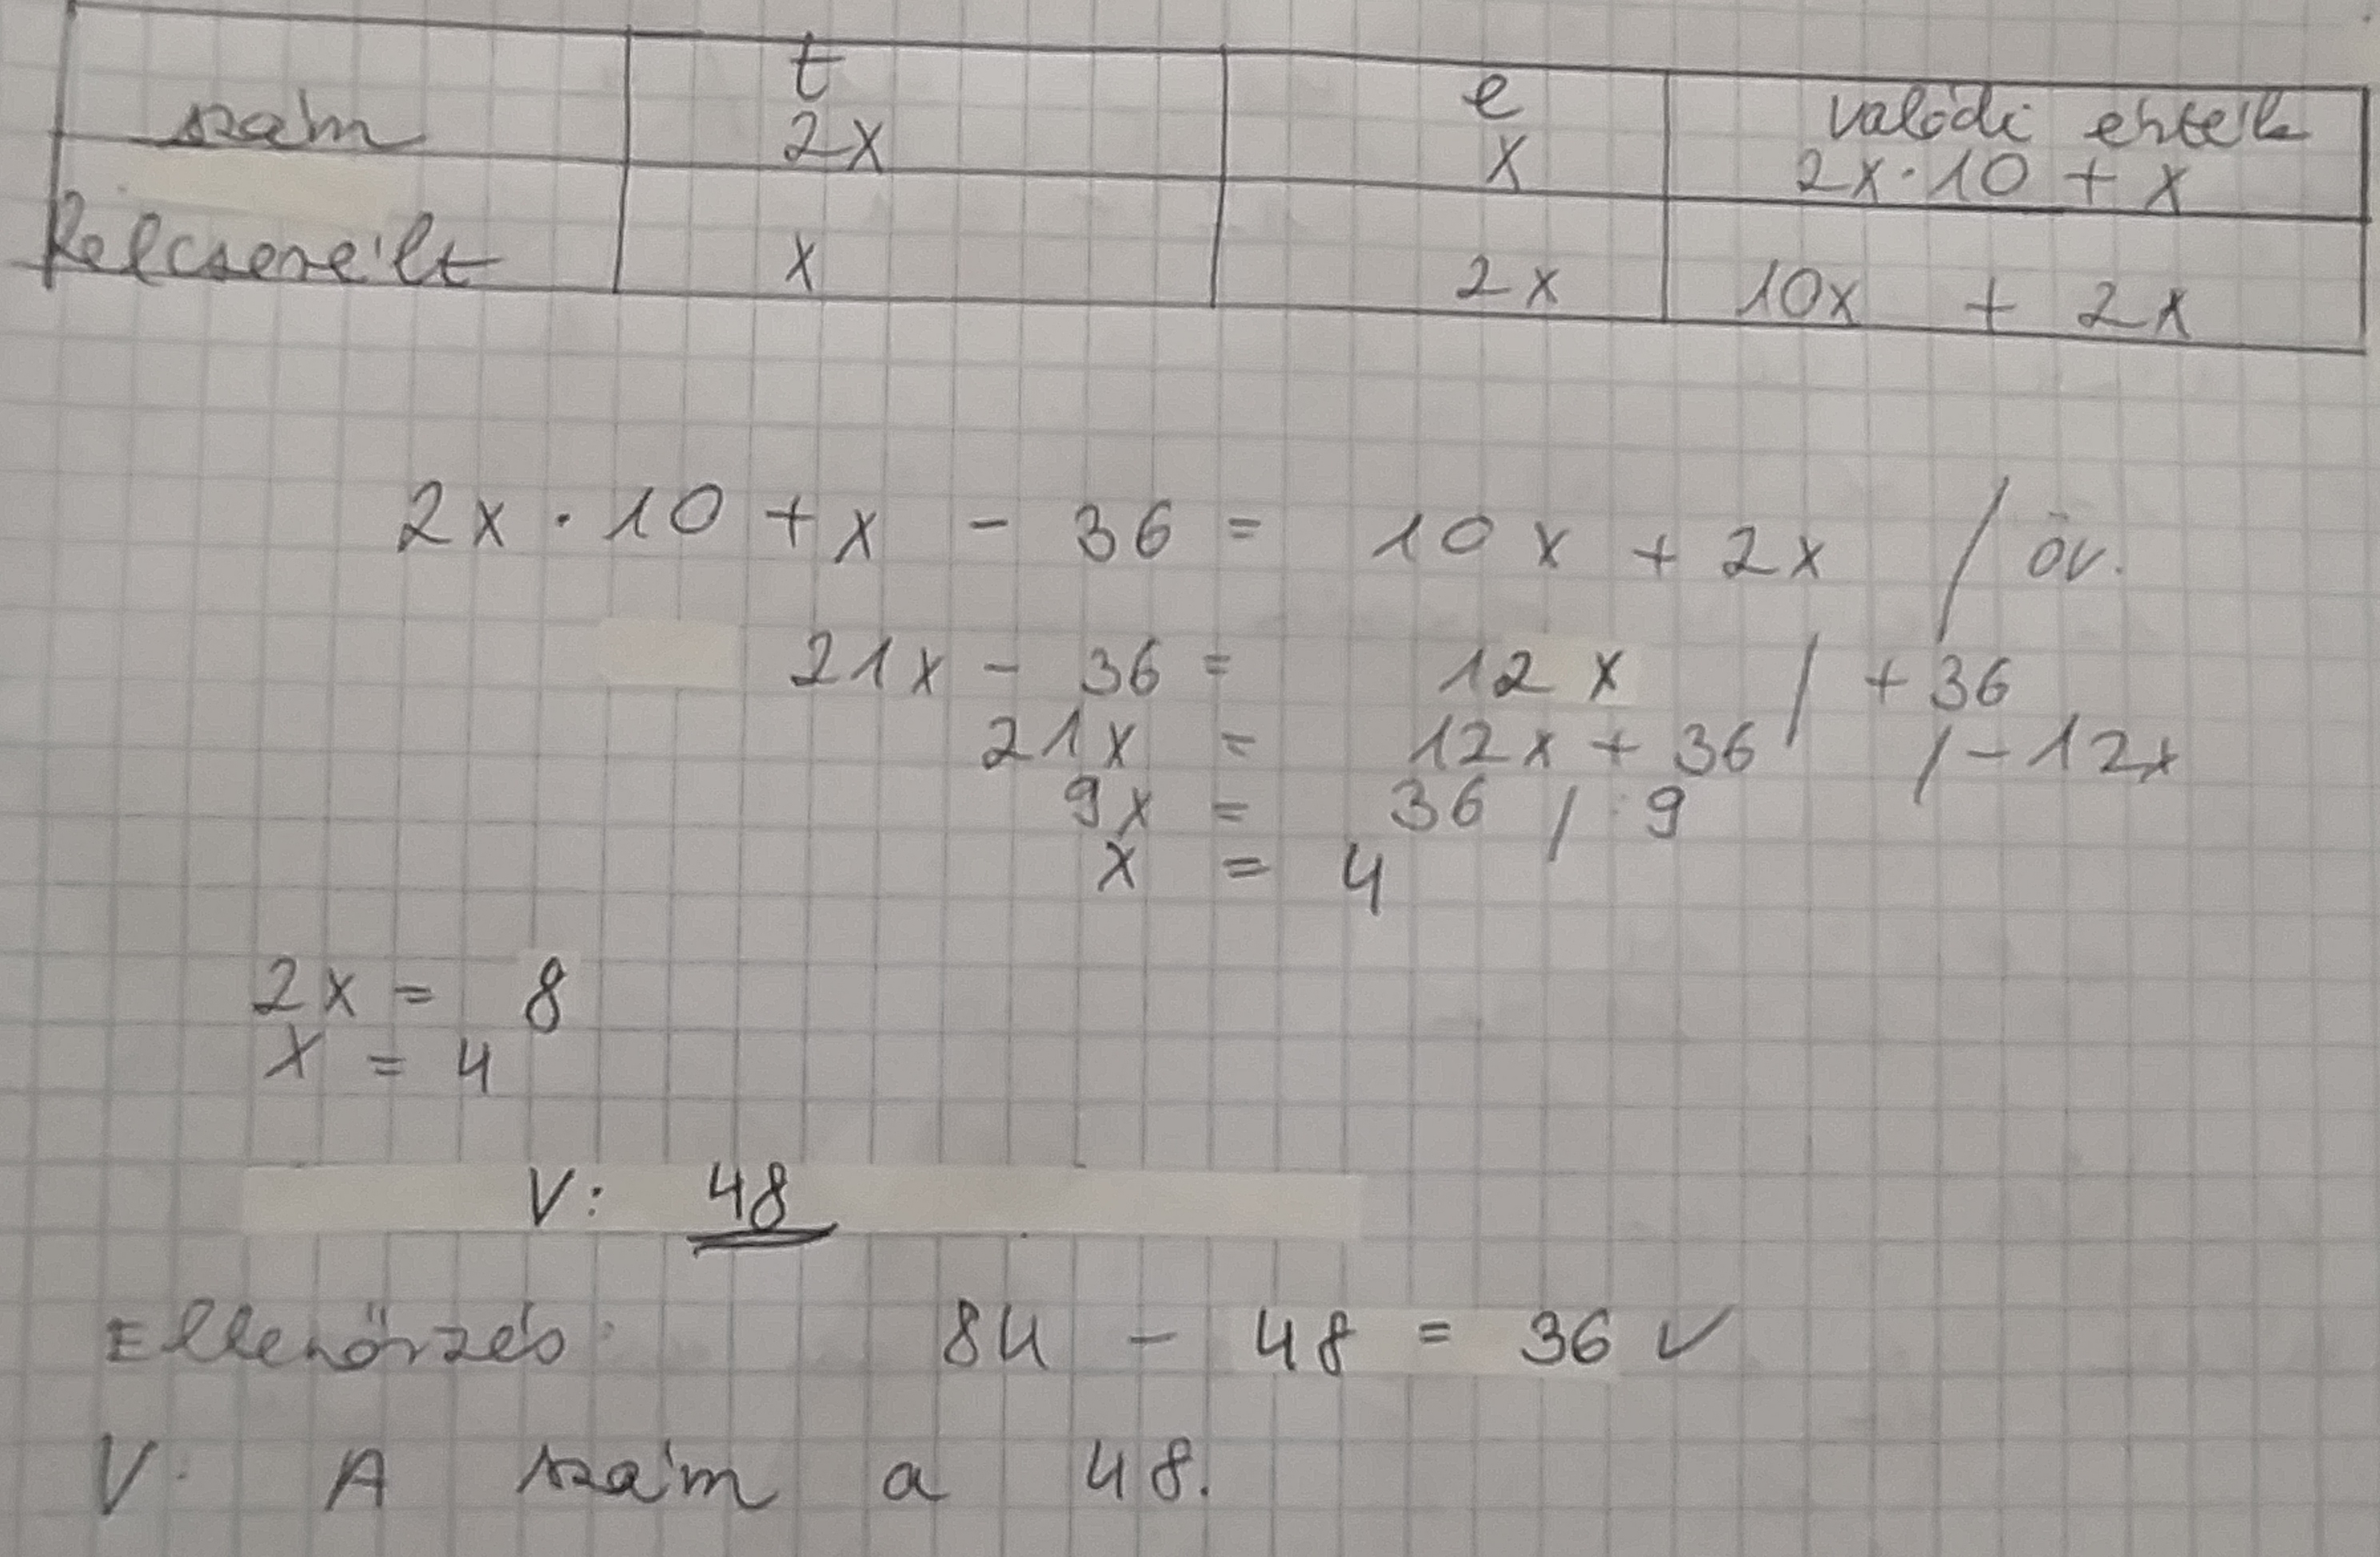 t e valódi érték
szám 2x x 2x·10 + x
felcserélt x 2x 10x + 2x
2x · 10 + x - 36 = 10x + 2x / öv.
21x - 36 = 12x / +36
21x = 12x + 36 / -12x
9x = 36 / :9
x = 4
2x = 8
x = 4
V: 48
Ellenőrzés: 84 - 48 = 36 ✓
V: A szám a 48.